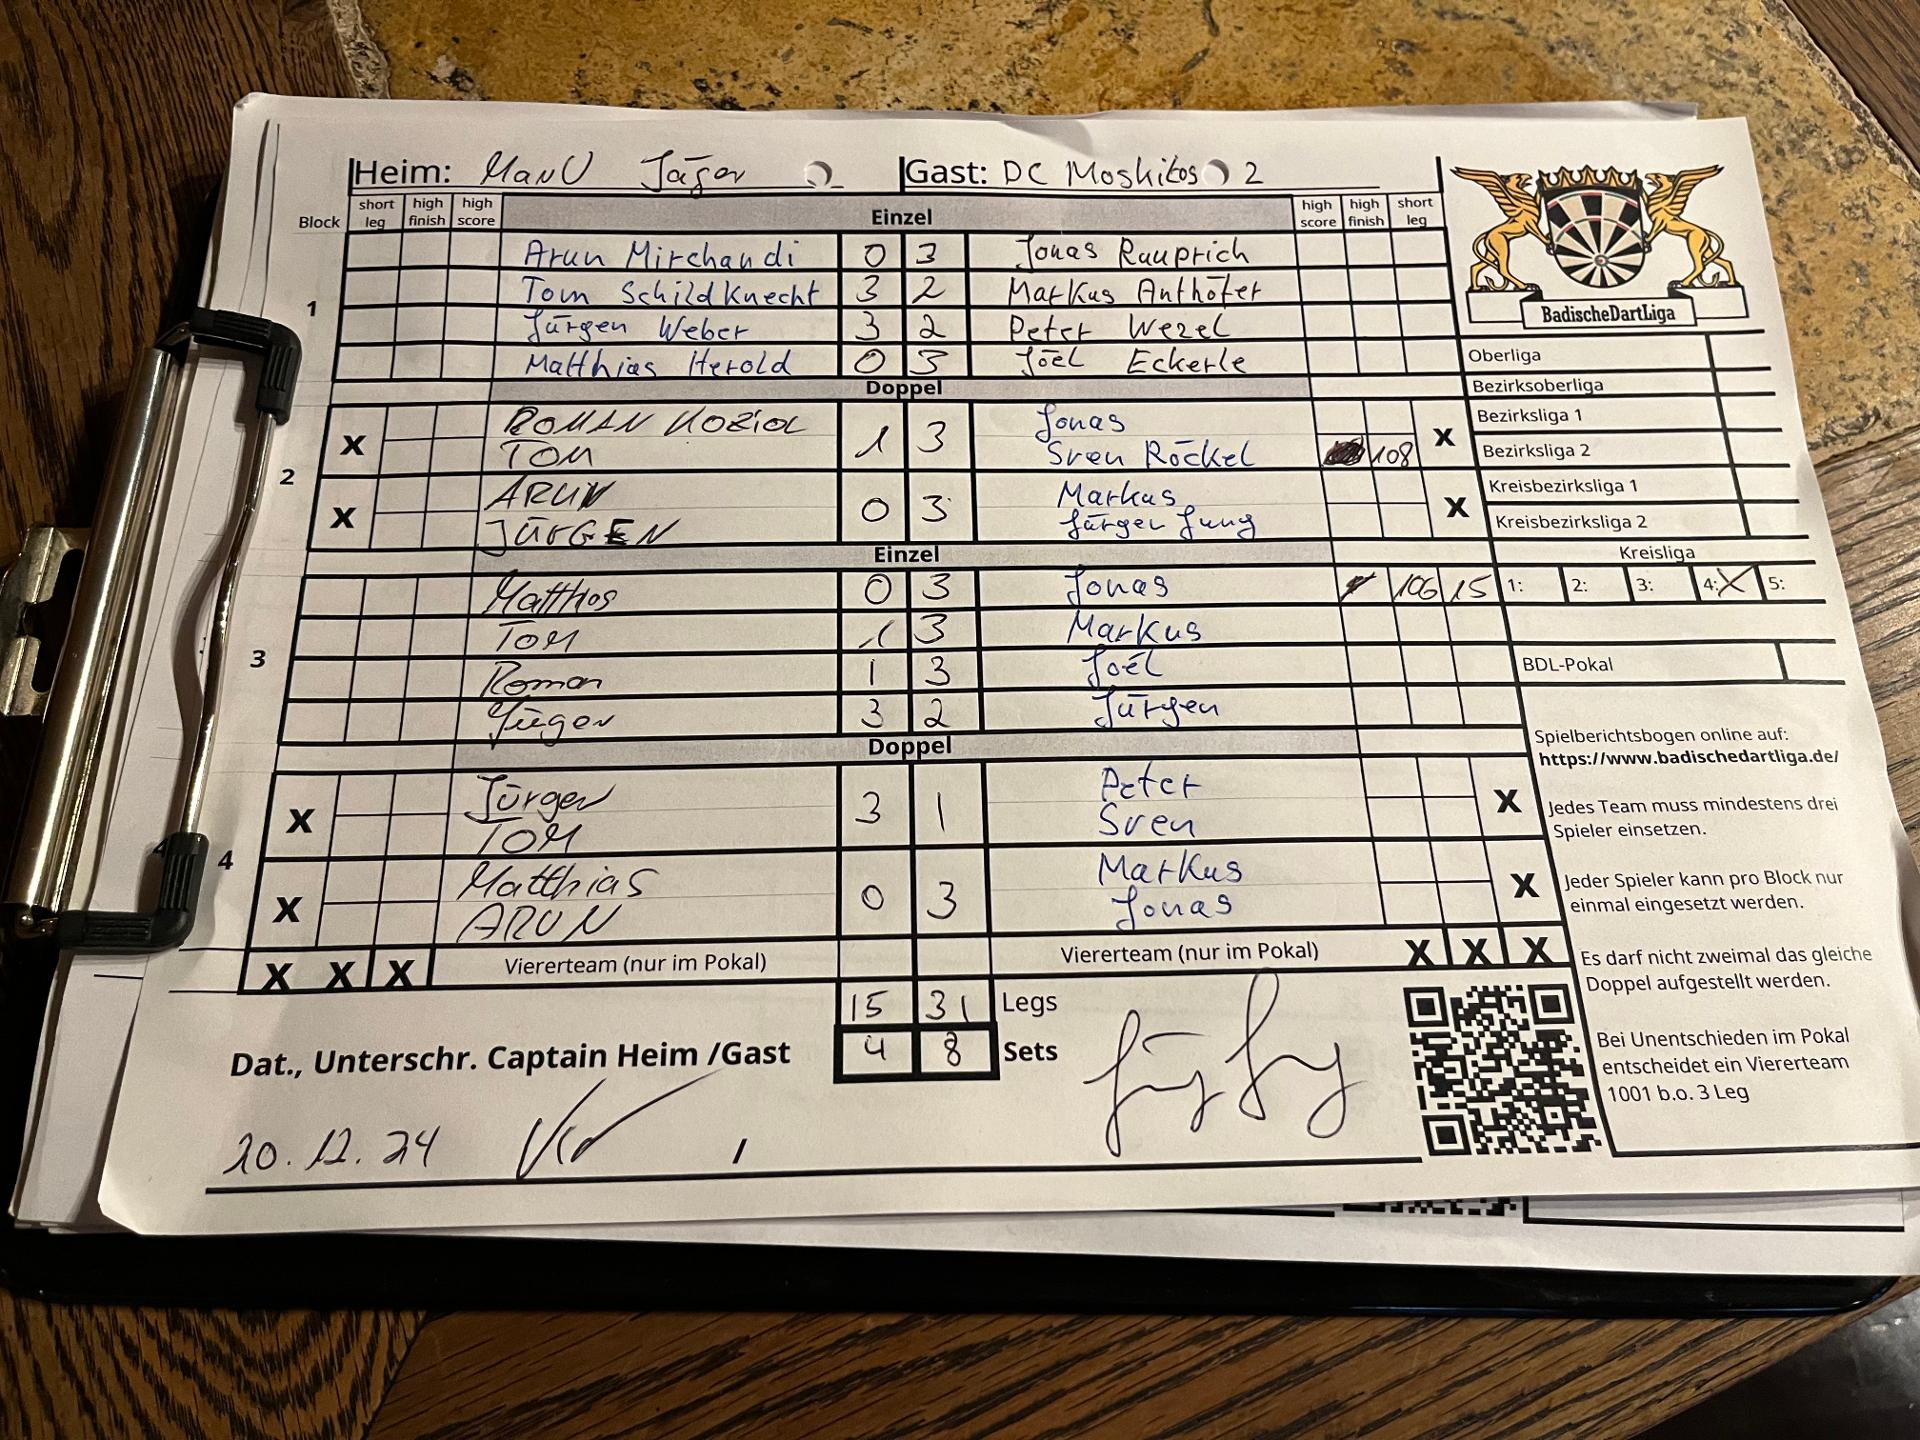 Heim: ManU Jäger Gast: DC Moskitos 2
Block short leg high finish high score Einzel high score high finish short leg
1
Arun Mirchandi 0 3 Jonas Rauprich
Tom Schildknecht 3 2 Markus Anthöfer
Jürgen Weber 3 2 Peter Wezel
Matthias Herold 0 3 Joël Eckerle
Doppel
2
X ROMAN KOZIOL 1 3 Jonas X
TOM Sven Röckel 108
X ARUN 0 3 Markus X
JÜRGEN Jürgen Jung
Einzel
3
Matthias 0 3 Jonas 106 15
TOM 1 3 Markus
Roman 1 3 Joël
Jürgen 3 2 Jürgen
Doppel
4
X Jürgen 3 1 Peter X
TOM Sven
X Matthias 0 3 Markus X
ARUN Jonas
X X X Viererteam (nur im Pokal) Viererteam (nur im Pokal) X X X
15 31 Legs
4 8 Sets
Dat., Unterschr. Captain Heim /Gast
20.12.24
BadischeDartLiga
Oberliga
Bezirksoberliga
Bezirksliga 1
Bezirksliga 2
Kreisbezirksliga 1
Kreisbezirksliga 2
Kreisliga
1: 2: 3: 4: X 5:
BDL-Pokal
Spielberichtsbogen online auf:
https://www.badischedartliga.de/
Jedes Team muss mindestens drei
Spieler einsetzen.
Jeder Spieler kann pro Block nur
einmal eingesetzt werden.
Es darf nicht zweimal das gleiche
Doppel aufgestellt werden.
Bei Unentschieden im Pokal
entscheidet ein Viererteam
1001 b.o. 3 Leg